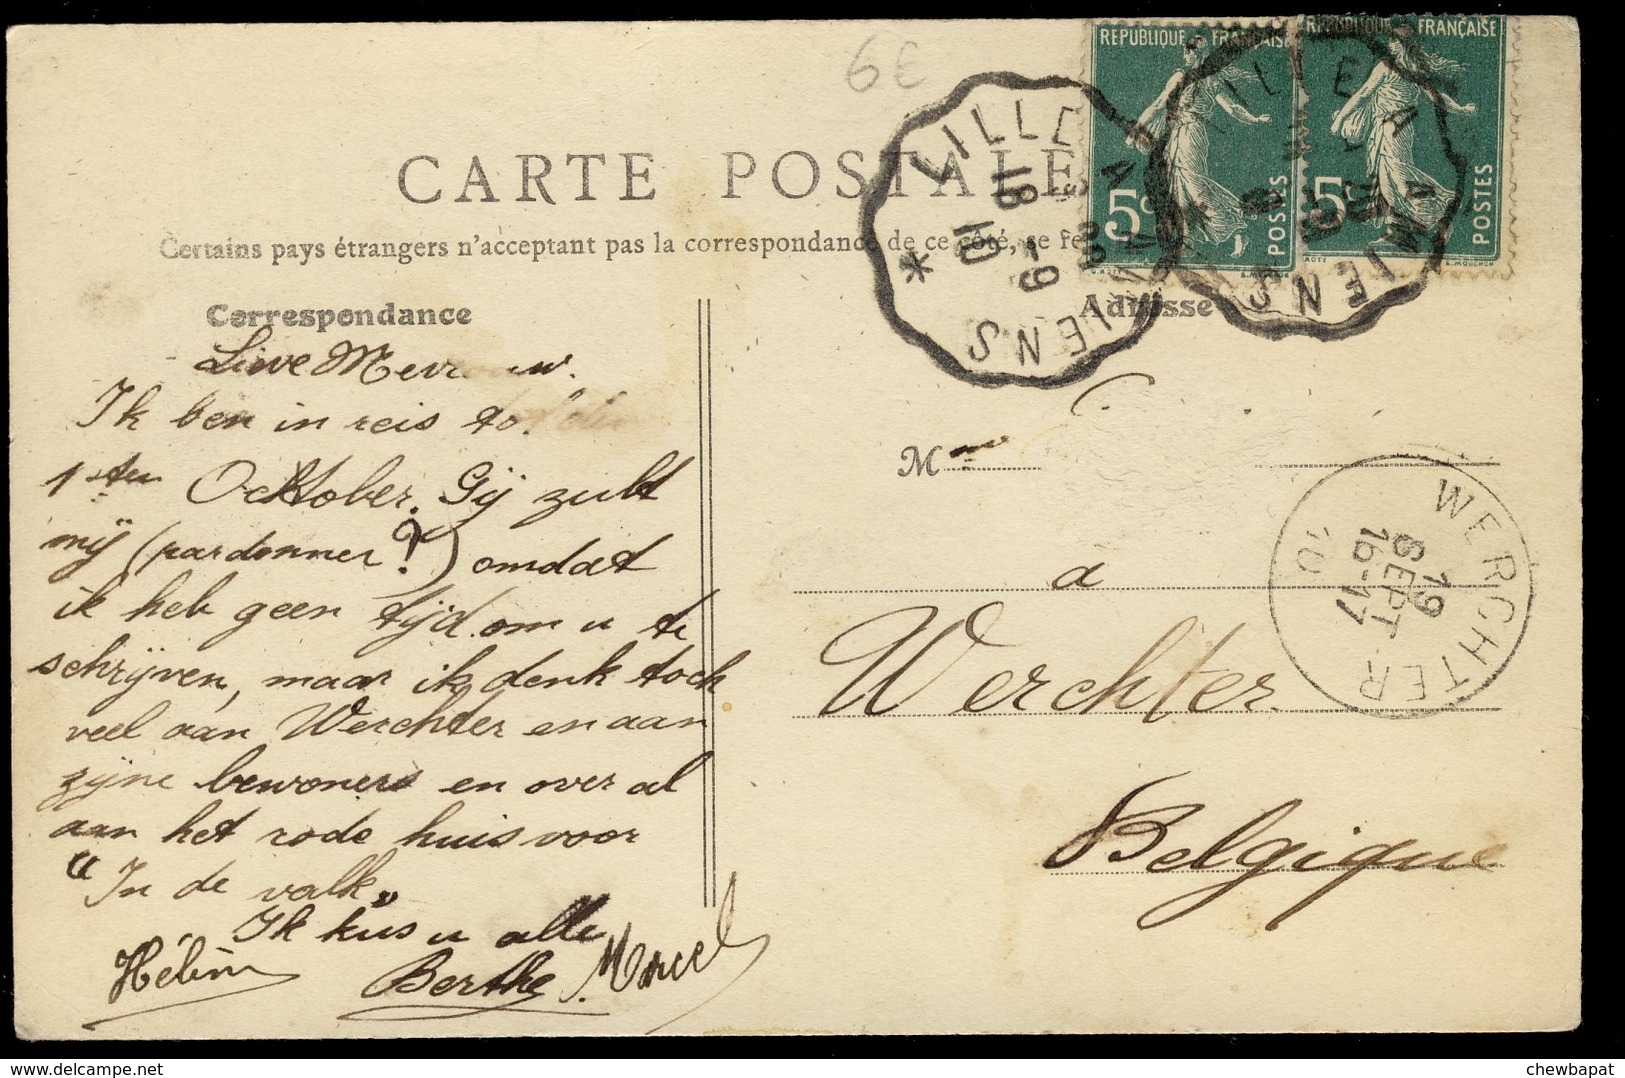 6€
REPUBLIQUE FRANÇAISE
REPUBLIQUE FRANÇAISE
5c POSTES
5c POSTES
LILLE A AMIENS
18 -9 10
LILLE A AMIENS
CARTE POSTALE
Certains pays étrangers n'acceptant pas la correspondance de ce côté, se
Correspondance
Adresse
Lieve Mevrouw.
Ik ben in reis
1sten Ocktober. Gij zult
mij (pardonner?) omdat
ik heb geen tijd om u te
schrijven, maar ik denk toch
veel aan Werchter en aan
zijne bewoners en over al
aan het rode huis voor
"In de valk"
Ik kus u alle
Hélène Berthe Marcel
Mme
a
Werchter.
Belgique
WERCHTER
19
SEPT
16-17
10
chewbapat